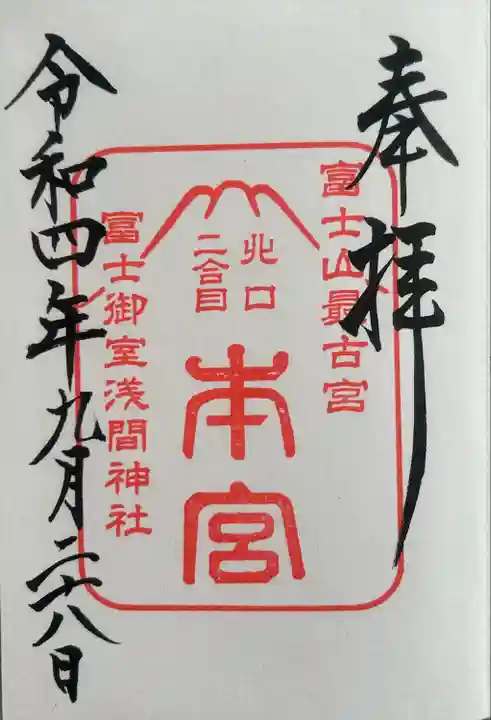 奉拝
富士山最古宮
北口
二合目
本宮
富士御室浅間神社
令和四年九月二十八日